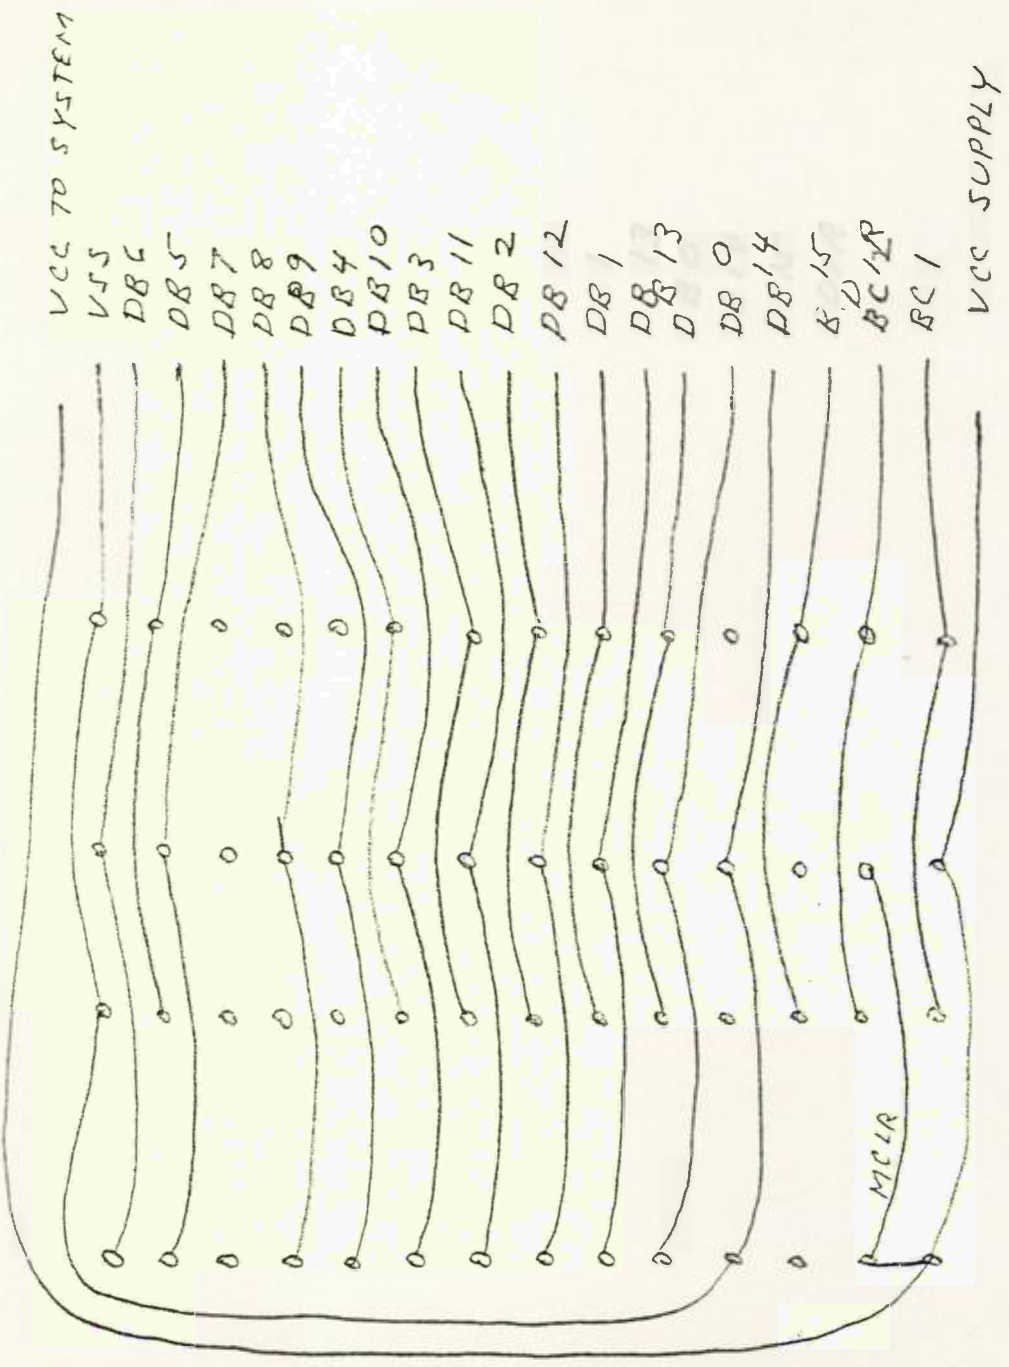 VCC TO SYSTEM
VSS
DB6
DB5
DB7
DB8
DB9
DB4
DB10
DB3
DB11
DB2
DB12
DB1
DB
DB13
DB0
DB14
15
BC1
VCC SUPPLY
MCLR